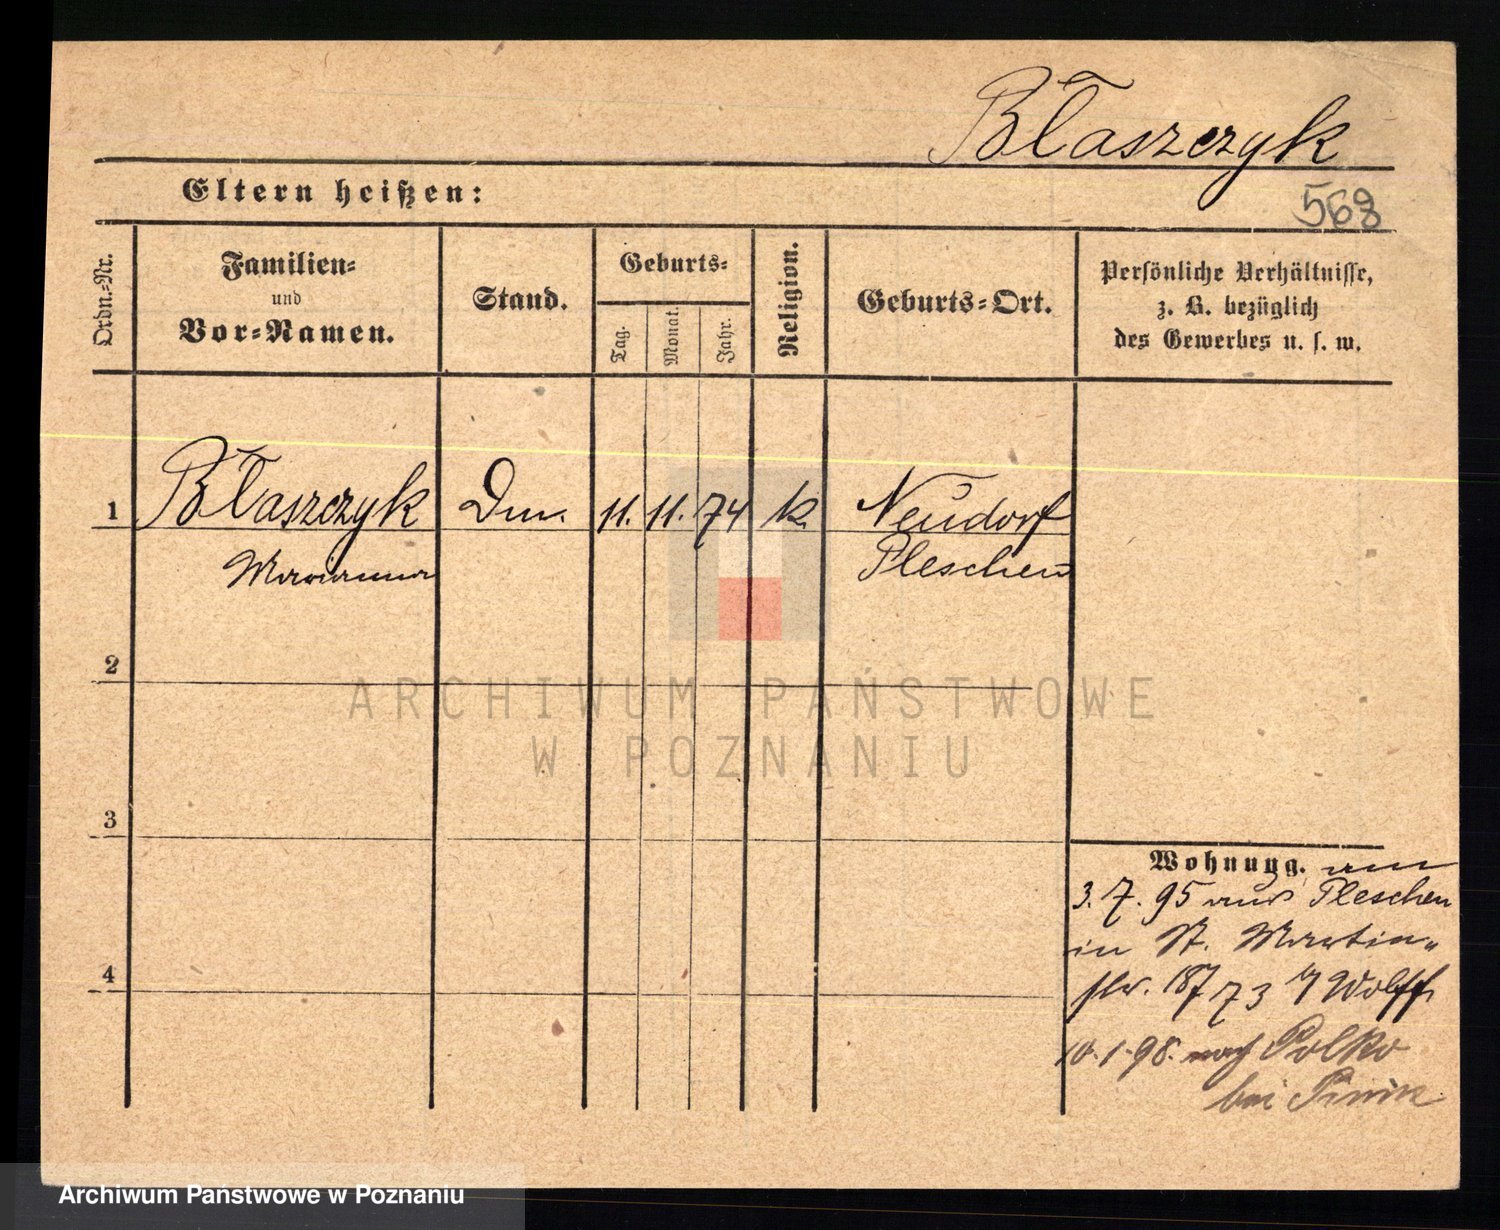 Błaszczyk
Eltern heißen:
568
Ordn.-Nr.
Familien-
und
Vor-Namen.
Stand.
Geburts-
Tag.
Monat.
Jahr.
Religion.
Geburts-Ort.
Persönliche Verhältnisse,
z. B. bezüglich
des Gewerbes u. s. w.
1 Błaszczyk Dm. 11. 11. 74 k. Neudorf
Marianna Pleschen
2
ARCHIWUM PAŃSTWOWE
W POZNANIU
3
Wohnung. am
3. 7. 95 aus Pleschen
in St. Martin-
str. 73 Wolff
4
10.1.98. nach
bei
Archiwum Państwowe w Poznaniu